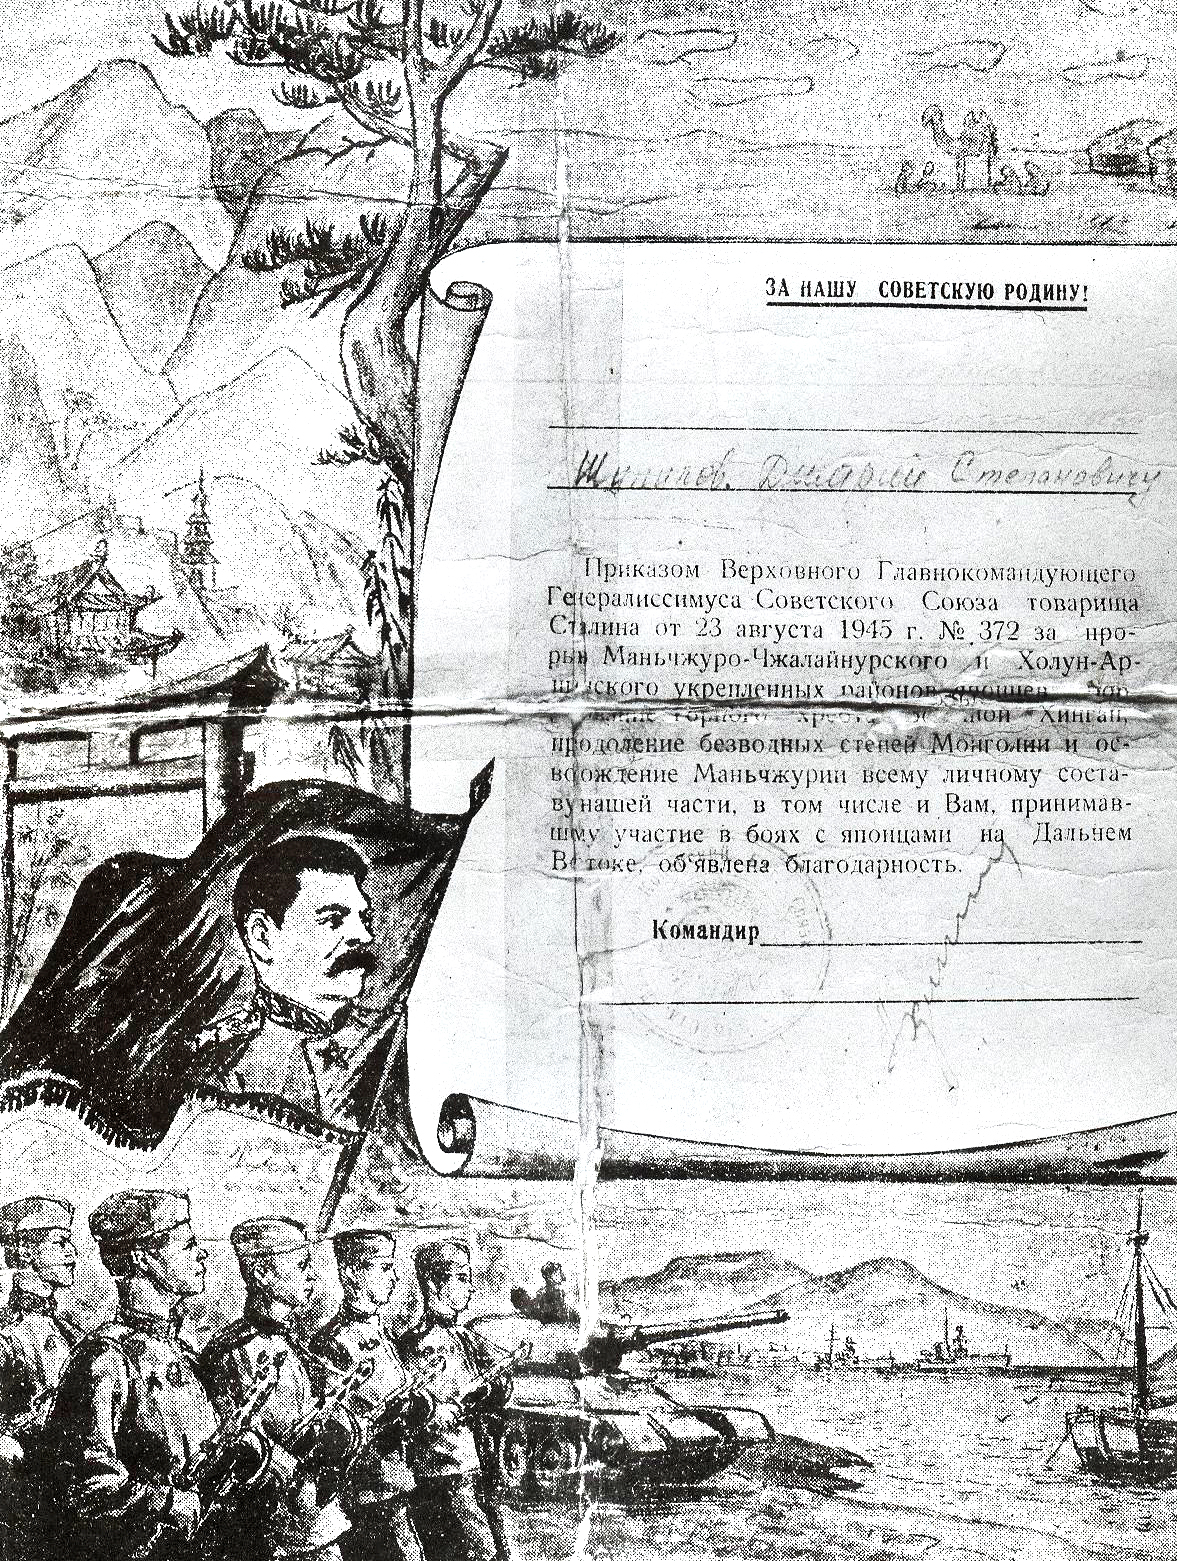 ЗА НАШУ СОВЕТСКУЮ РОДИНУ!
Дмитрий Степановичу
Приказом Верховного Главнокомандующего
Генералиссимуса Советского Союза товарища
Сталина от 23 августа 1945 г. № 372 за про-
рыв Маньчжуро-Чжалайнурского и Холун-Ар-
шанского укрепленных районов японцев, фор-
сирование горного хребта Большой Хинган,
продоление безводных степей Монголии и ос-
вобождение Маньчжурии всему личному соста-
ву нашей части, в том числе и Вам, принимав-
шму участие в боях с японцами на Дальнем
Востоке, об'явлена благодарность.
Командир